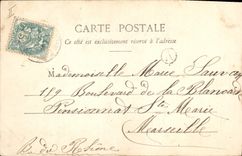 CARTE POSTALE
Ce côté est exclusivement réservé à l'adresse
Mademoiselle Marie Sauvay
119 Boulevard de la Blancarde
Pensionnat Ste Marie
Marseille
du Rhône